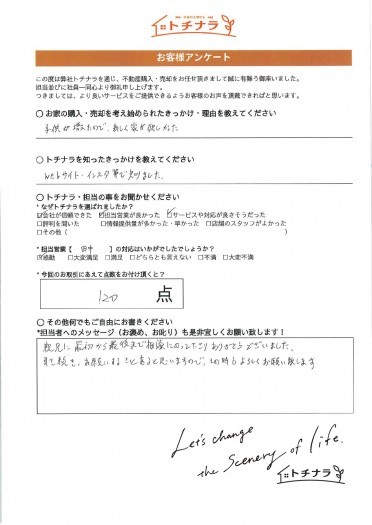 トチナラ
お客様アンケート
この度は弊社トチナラを通じ、不動産購入・売却をお任せ頂きまして誠に有難う御座いました。
担当並びに社員一同心より御礼申し上げます。
つきましては、より良いサービスをご提供できるようお客様のお声を頂戴できればと思います。
○ お家の購入・売却を考え始められたきっかけ・理由を教えてください
子供が増えたので、新しく家が欲しかった
○ トチナラを知ったきっかけを教えてください
webサイト・インスタ等で知りました。
○ トチナラ・担当の事をお聞かせください
*なぜトチナラを選ばれましたか?
☑会社が信頼できた ☑担当営業が良かった ☑サービスや対応が良さそうだった
□評判を聞いた □情報提供量が多かった・早かった □店舗のスタッフがよかった
□その他( )
*担当営業【 】の対応はいかがでしたでしょうか?
☑感動 □大変満足 □満足 □どちらとも言えない □不満 □大変不満
*今回のお取引にあえて点数をお付け頂くと?
120 点
○ その他何でもご自由にお書きください
*担当者へのメッセージ(お褒め、お叱り)も是非宜しくお願い致します!
親身に最初から最後まで相談にのってくださりありがとうございました。
引き続き、お世話になることもあると思いますので、その時もよろしくお願い致します
Let's change
the Scenery of life.
トチナラ